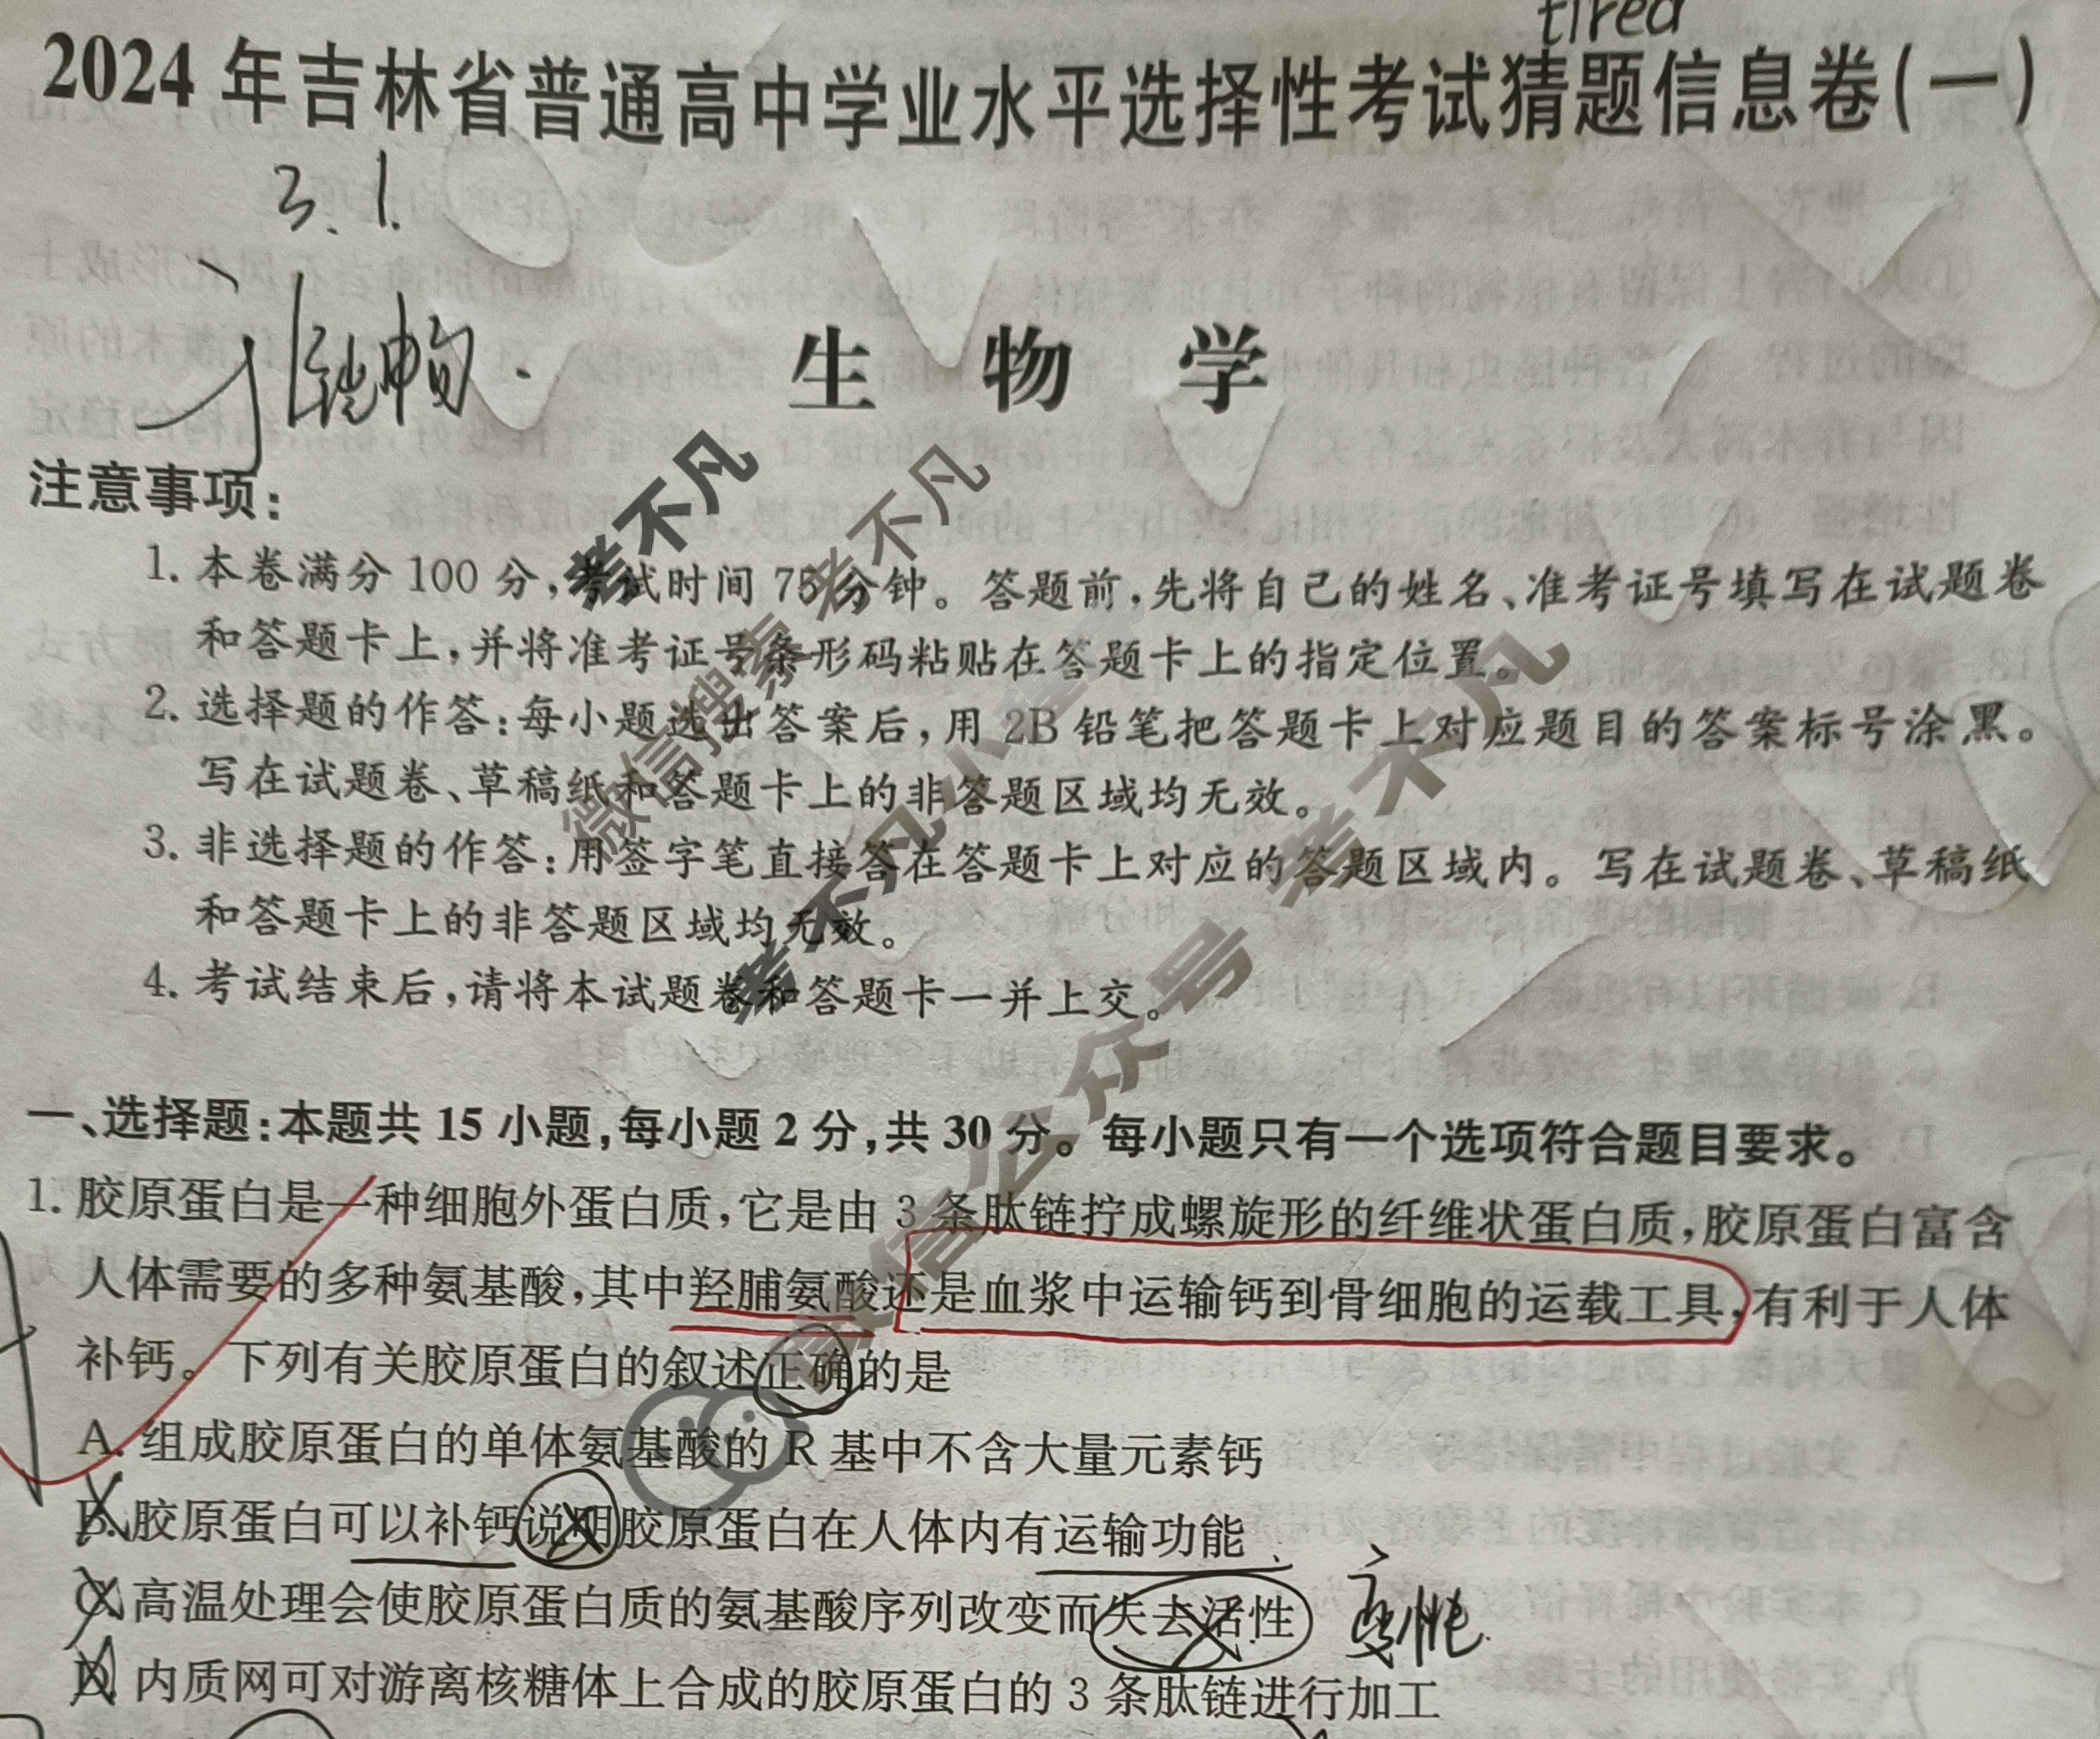 tired
2024年吉林省普通高中学业水平选择性考试猜题信息卷(一)
3.1.
生 物 学
注意事项:
1. 本卷满分100分,考试时间75分钟。答题前,先将自己的姓名、准考证号填写在试题卷
和答题卡上,并将准考证号条形码粘贴在答题卡上的指定位置。
2. 选择题的作答:每小题选出答案后,用2B铅笔把答题卡上对应题目的答案标号涂黑。
写在试题卷、草稿纸和答题卡上的非答题区域均无效。
3. 非选择题的作答:用签字笔直接答在答题卡上对应的答题区域内。写在试题卷、草稿纸
和答题卡上的非答题区域均无效。
4. 考试结束后,请将本试题卷和答题卡一并上交。
考不凡
微信搜索 考不凡
考不凡小
微信公众号 考不凡
一、选择题:本题共15小题,每小题2分,共30分。每小题只有一个选项符合题目要求。
1. 胶原蛋白是一种细胞外蛋白质,它是由3条肽链拧成螺旋形的纤维状蛋白质,胶原蛋白富含
人体需要的多种氨基酸,其中羟脯氨酸还是血浆中运输钙到骨细胞的运载工具,有利于人体
补钙。下列有关胶原蛋白的叙述正确的是
A. 组成胶原蛋白的单体氨基酸的R基中不含大量元素钙
B. 胶原蛋白可以补钙说明胶原蛋白在人体内有运输功能
C. 高温处理会使胶原蛋白质的氨基酸序列改变而失去活性
变性
D. 内质网可对游离核糖体上合成的胶原蛋白的3条肽链进行加工